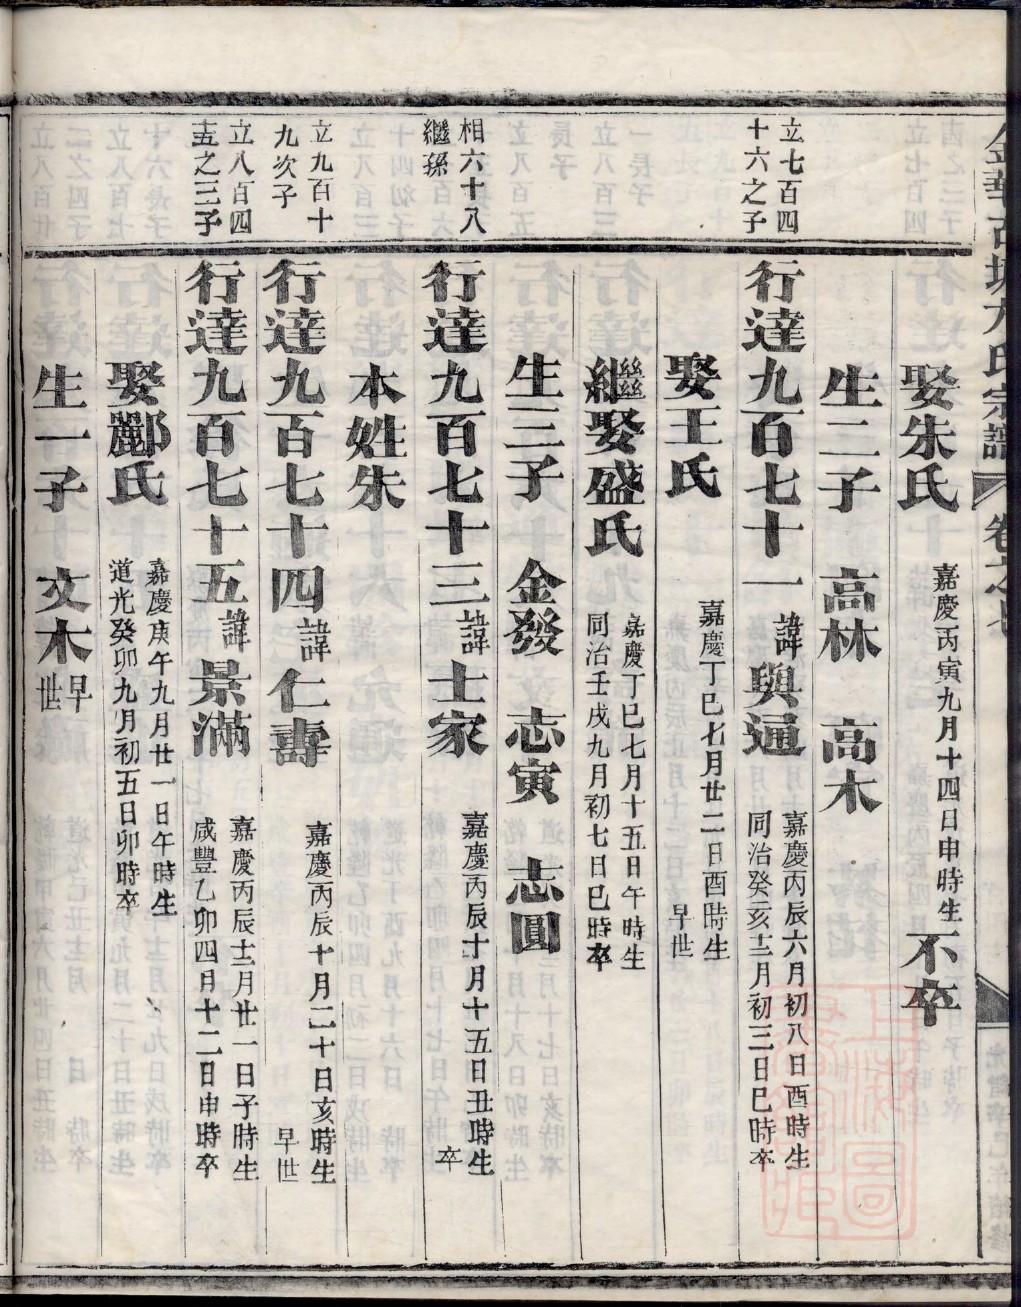 娶朱氏 嘉慶丙寅九月十四日申時生 不卒
生二子 高林 高木
立七百四
十六之子
行達九百七十一 諱與通 嘉慶丙辰六月初八日酉時生
同治癸亥十二月初三日巳時卒
娶王氏 嘉慶丁巳七月廿二日酉時生
早世
繼娶盛氏 嘉慶丁巳七月十五日午時生
同治壬戌九月初七日巳時卒
生三子 金發 志寅 志圓
相六十八
繼孫
行達九百七十三 諱士家 嘉慶丙辰十月十五日丑時生
卒
本姓朱
立九百十
九次子
行達九百七十四 諱仁壽 嘉慶丙辰十月二十日亥時生
早世
立八百四
十五之三子
行達九百七十五 諱景滿 嘉慶丙辰十二月廿一日子時生
咸豐乙卯四月十二日申時卒
娶酈氏 嘉慶庚午九月廿一日午時生
道光癸卯九月初五日卯時卒
生一子 文木 早世